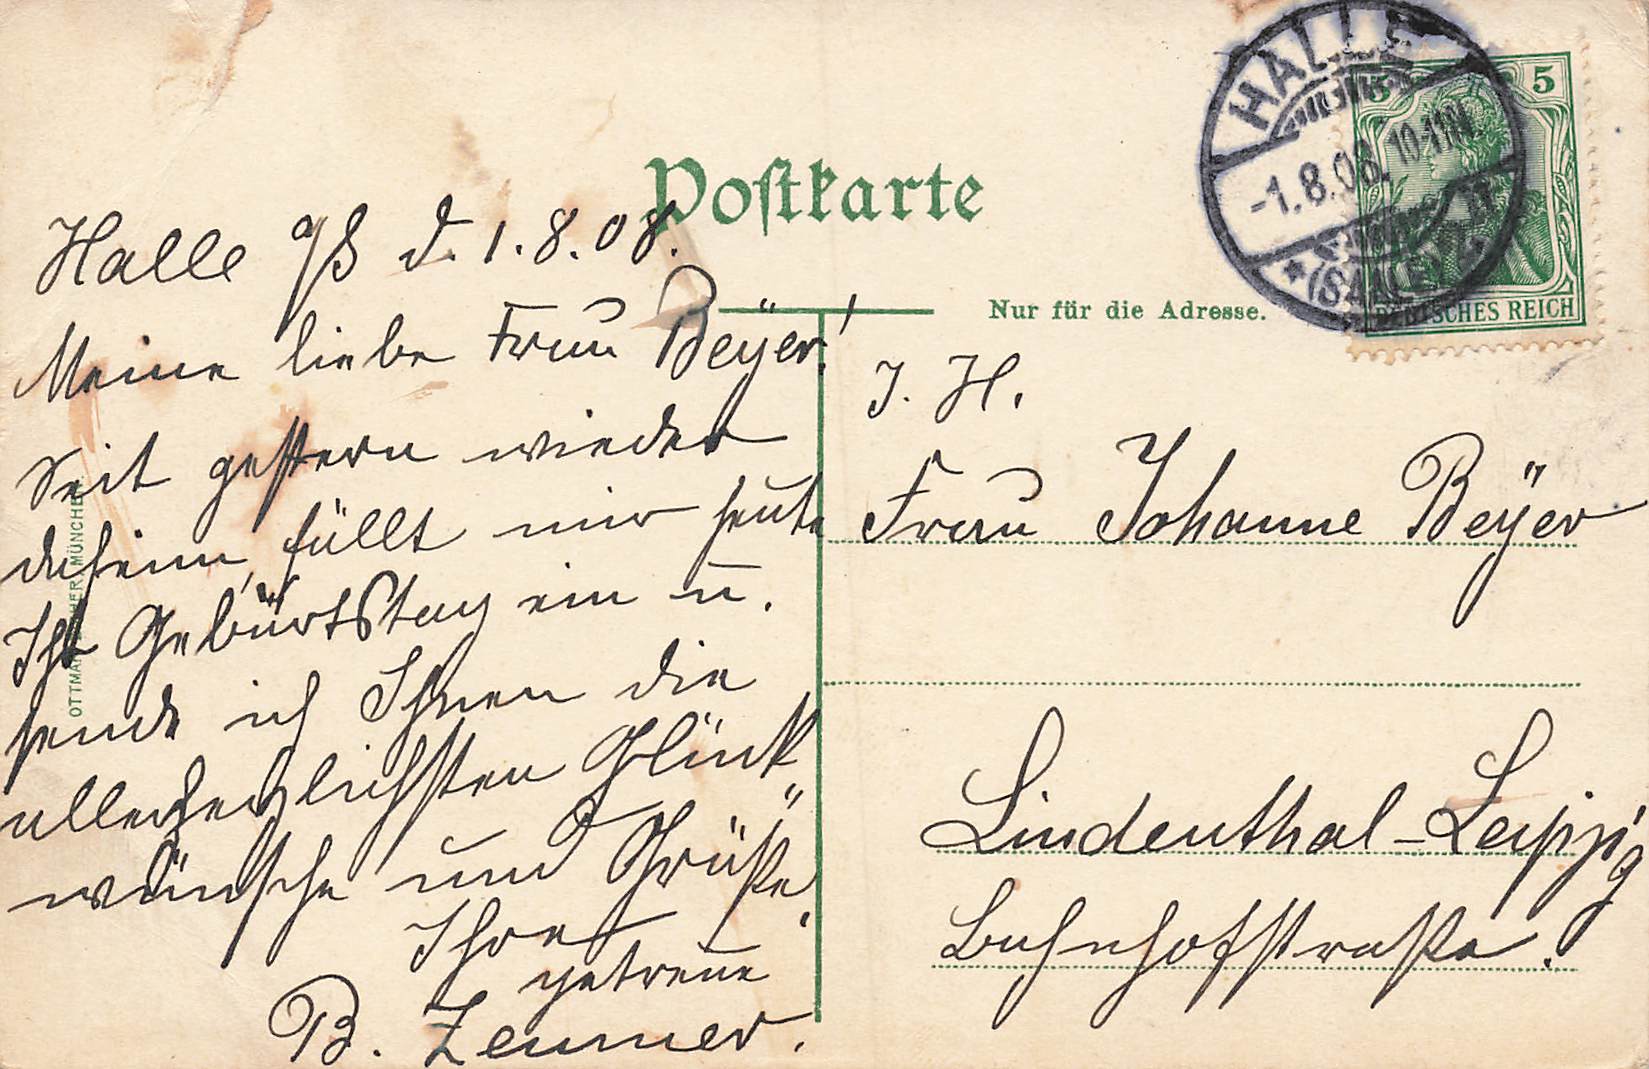 Postkarte
Nur für die Adresse.
HALLE
-1.8.08. 10-11N.
(SAALE) 2
5 5
DEUTSCHES REICH
Halle a/S d. 1.8.08.
Meine liebe Frau Beÿer!
Seit gestern wieder
daheim, fällt mir heute
Ihr Geburtstag ein u.
sende ich Ihnen die
allerherzlichsten Glück
wünsche und Grüße.
Ihre
getreue
B. Zeumer.
I. H.
Frau Johanne Beÿer
Lindenthal-Leipzig
Bahnhofstraße.
OTTMAR ZIEHER, MÜNCHEN